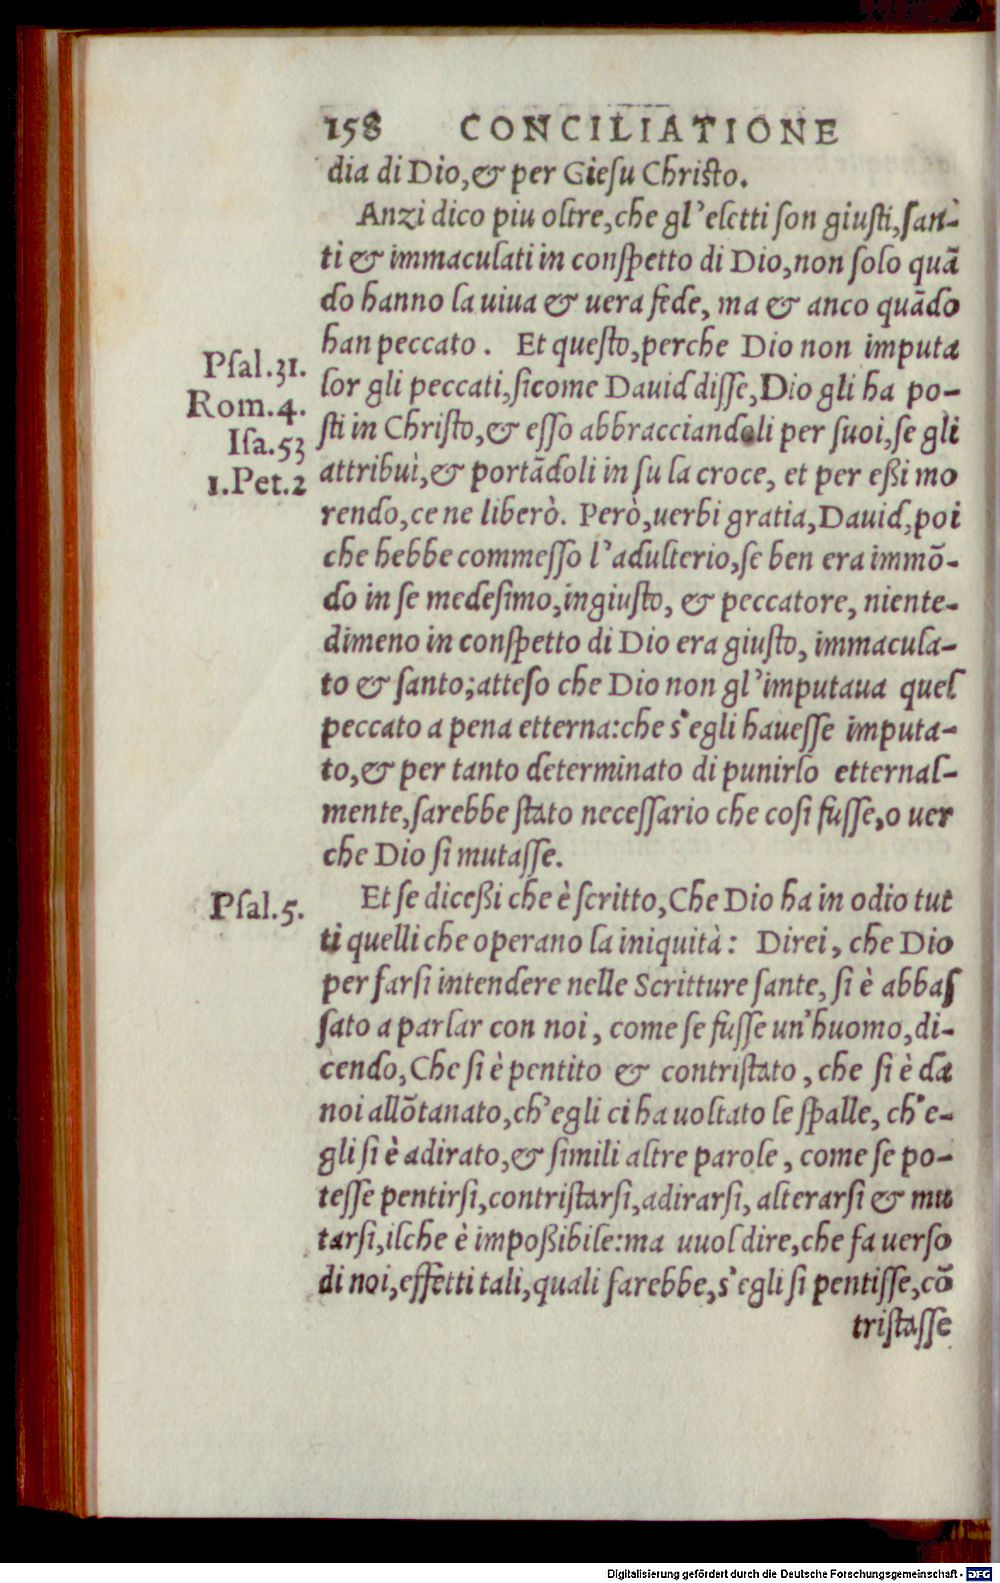 158 CONCILIATIONE
dia di Dio, & per Giesu Christo.
Anzi dico piu oltre, che gl'eletti son giusti, san-
ti & immaculati in conspetto di Dio, non solo quã
do hanno la uiua & uera fede, ma & anco quãdo
han peccato. Et questo, perche Dio non imputa
Psal.31.
lor gli peccati, sicome Dauid disse, Dio gli ha po-
Rom.4.
sti in Christo, & esso abbracciandoli per suoi, se gli
Isa.53
attribuì, & portãdoli in su la croce, et per eßi mo
1.Pet.2
rendo, ce ne liberò. Però, uerbi gratia, Dauid, poi
che hebbe commesso l'adulterio, se ben era immõ-
do in se medesimo, ingiusto, & peccatore, niente-
dimeno in conspetto di Dio era giusto, immacula-
to & santo; atteso che Dio non gl'imputaua quel
peccato a pena etterna: che s'egli hauesse imputa-
to, & per tanto determinato di punirlo etternal-
mente, sarebbe stato necessario che cosi fusse, o uer
che Dio si mutasse.
Psal.5.
Et se diceßi che è scritto, Che Dio ha in odio tut
ti quelli che operano la iniquità: Direi, che Dio
per farsi intendere nelle Scritture sante, si è abbas
sato a parlar con noi, come se fusse un'huomo, di-
cendo, Che si è pentito & contristato, che si è da
noi allõtanato, ch'egli ci ha uoltato le spalle, ch'e-
gli si è adirato, & simili altre parole, come se po-
tesse pentirsi, contristarsi, adirarsi, alterarsi & mu
tarsi, ilche è impoßibile: ma uuol dire, che fa uerso
di noi, effetti tali, quali farebbe, s'egli si pentisse, cõ
tristasse
Digitalisierung gefördert durch die Deutsche Forschungsgemeinschaft - DFG